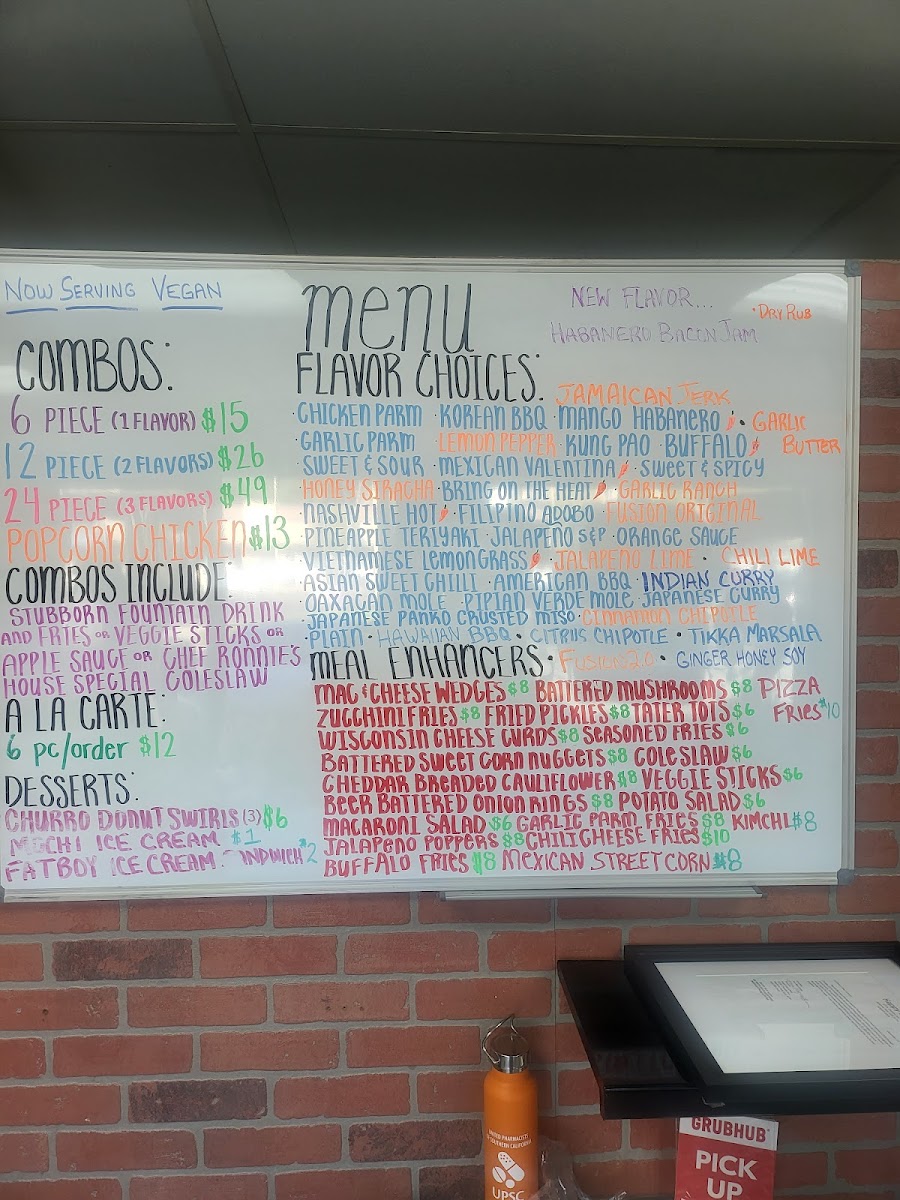 NOW SERVING VEGAN
COMBOS:
6 PIECE (1 FLAVOR) $15
12 PIECE (2 FLAVORS) $26
24 PIECE (3 FLAVORS) $49
POPCORN CHICKEN $13
COMBOS INCLUDE:
STUBBORN FOUNTAIN DRINK
AND FRIES OR VEGGIE STICKS OR
APPLE SAUCE OR CHEF RONNIE'S
HOUSE SPECIAL COLESLAW
A LA CARTE:
6 pc/order $12
DESSERTS:
CHURRO DONUT SWIRLS (3) $6
MOCHI ICE CREAM $1
FATBOY ICE CREAM $2
menu
NEW FLAVOR...
HABANERO BACON JAM
• DRY RUB
FLAVOR CHOICES:
JAMAICAN JERK
• CHICKEN PARM • KOREAN BBQ • MANGO HABANERO • GARLIC BUTTER
• GARLIC PARM • LEMON PEPPER • KUNG PAO • BUFFALO
• SWEET & SOUR • MEXICAN VALENTINA • SWEET & SPICY
• HONEY SIRACHA • BRING ON THE HEAT • GARLIC RANCH
• NASHVILLE HOT • FILIPINO ADOBO • FUSION ORIGINAL
• PINEAPPLE TERIYAKI • JALAPENO S&P • ORANGE SAUCE
• VIETNAMESE LEMONGRASS • JALAPENO LIME • CHILI LIME
• ASIAN SWEET CHILLI • AMERICAN BBQ • INDIAN CURRY
• OAXACAN MOLE • PIPIAN VERDE MOLE • JAPANESE CURRY
• JAPANESE PANKO CRUSTED MISO • CINNAMON CHIPOTLE
• PLAIN • HAWAIIAN BBQ • CITRUS CHIPOTLE • TIKKA MARSALA
• FUSION 2.0 • GINGER HONEY SOY
MEAL ENHANCERS
MAC & CHEESE WEDGES $8 BATTERED MUSHROOMS $8 PIZZA FRIES $10
ZUCCHINI FRIES $8 FRIED PICKLES $8 TATER TOTS $6
WISCONSIN CHEESE CURDS $8 SEASONED FRIES $6
BATTERED SWEET CORN NUGGETS $8 COLESLAW $6
CHEDDAR BREADED CAULIFLOWER $8 VEGGIE STICKS $6
BEER BATTERED ONION RINGS $8 POTATO SALAD $6
MACARONI SALAD $6 GARLIC PARM FRIES $8 KIMCHI $8
JALAPENO POPPERS $8 CHILI CHEESE FRIES $10
BUFFALO FRIES $8 MEXICAN STREET CORN $8
UPSC
GRUBHUB
PICK
UP